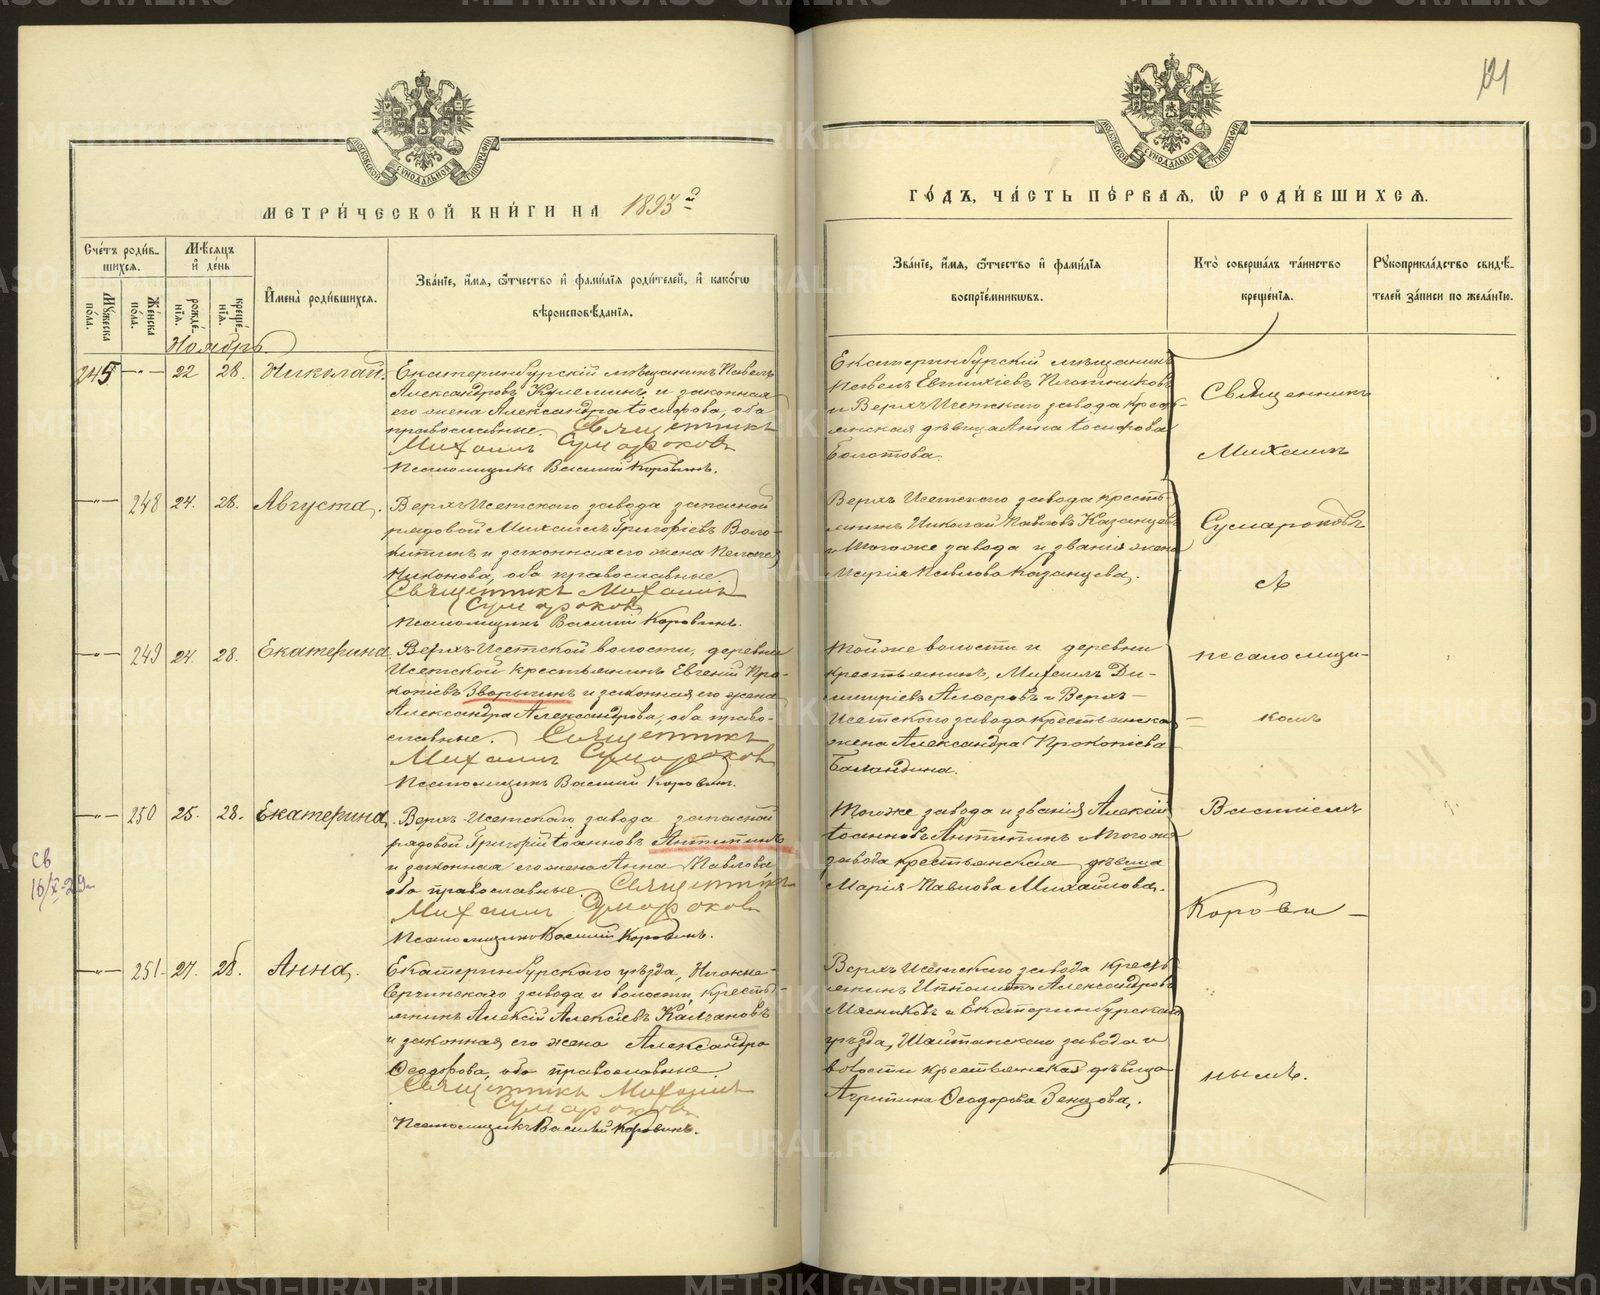 121
МЕТРИ́ЧЕСКОЙ КНИ́ГИ НА 1893 ГО́ДЪ, ЧА́СТЬ ПЕ́РВАЯ, Ѽ РОДИ́ВШИХСѦ.
Сче́тъ роди́вшихсѧ.
Мꙋ́жеска по́ла.
Же́нска по́ла.
Мѣ́сѧцъ и҆ де́нь
рожде́нїѧ.
креще́нїѧ.
И҆мена̀ роди́вшихсѧ.
Зва́нїе, и҆́мѧ, ѻ҆́тчество и҆ фами́лїѧ роди́телей, и҆ како́гѡ
вѣроисповѣ́данїѧ.
Зва́нїе, и҆́мѧ, ѻ҆́тчество и҆ фами́лїѧ
воспрїе́мникѡвъ.
Кто̀ соверша́лъ та́инство
креще́нїѧ.
Рꙋкоприкла́дство свидѣ́телей за́писи по жела́нїю.
Ноябрь
245 —"— 22 28. Николай.
Екатеринбургскій мѣщанинъ Павелъ
Александровъ Кулеминъ и законная
его жена Александра Іосифова, оба
православные. Священникъ
Михаилъ Сумароковъ
Псаломщикъ Василій Коровинъ.
Екатеринбургскій мѣщанинъ
Павелъ Евтихіевъ Плотниковъ
и Верхъ-Исетскаго завода кресть-
янская дѣвица Анна Іосифова
Болотова.
—"— 248 24. 28. Августа.
Верхъ-Исетскаго завода запасной
рядовой Михаилъ Григоріевъ Воло-
китинъ и законная его жена Пелагея
Никонова, оба православные.
Священникъ Михаилъ
Сумароковъ
Псаломщикъ Василій Коровинъ.
Верхъ Исетскаго завода кресть-
янинъ Николай Павловъ Казанцевъ
и того же завода и званія жена
Марія Павлова Казанцева.
—"— 249 24. 28. Екатерина.
Верхъ-Исетской волости, деревни
Исетской крестьянинъ Евгеній Про-
копіевъ Зворыгинъ и законная его жена
Александра Александрова, оба право-
славные. Священникъ
Михаилъ Сумароковъ
Псаломщикъ Василій Коровинъ.
Той же волости и деревни
крестьянинъ, Михаилъ Ди-
митріевъ Алферовъ и Верхъ-
Исетскаго завода крестьянская
жена Александра Прокопіева
Баландина.
—"— 250 25. 28. Екатерина.
Верхъ-Исетскаго завода запасной
рядовой Григорій Іоанновъ Антипинъ
и законная его жена Анна Павлова
оба православные. Священникъ
Михаилъ Сумароковъ
Псаломщикъ Василій Коровинъ.
Того же завода и званія Алексій
Іоанновъ Антипинъ и того же
завода крестьянская дѣвица
Марія Павлова Михайлова.
св
16/X-29
—"— 251. 27. 28. Анна.
Екатеринбургскаго уѣзда, Нижне-
Сергинскаго завода и волости, кресть-
янинъ Алексій Алексѣевъ Колчановъ
и законная его жена Александра
Ѳеодорова, оба православные.
Священникъ Михаилъ
Сумароковъ
Псаломщикъ Василій Коровинъ.
Верхъ Исетскаго завода кресть-
янинъ Ипполитъ Александровъ
Мясниковъ и Екатеринбургскаго
уѣзда, Шайтанскаго завода и
волости крестьянская дѣвица
Агрипина Ѳеодорова Зенцова.
Священникъ
Михаилъ
Сумароковъ
съ
псаломщи-
комъ
Василіемъ
Корови-
нымъ.